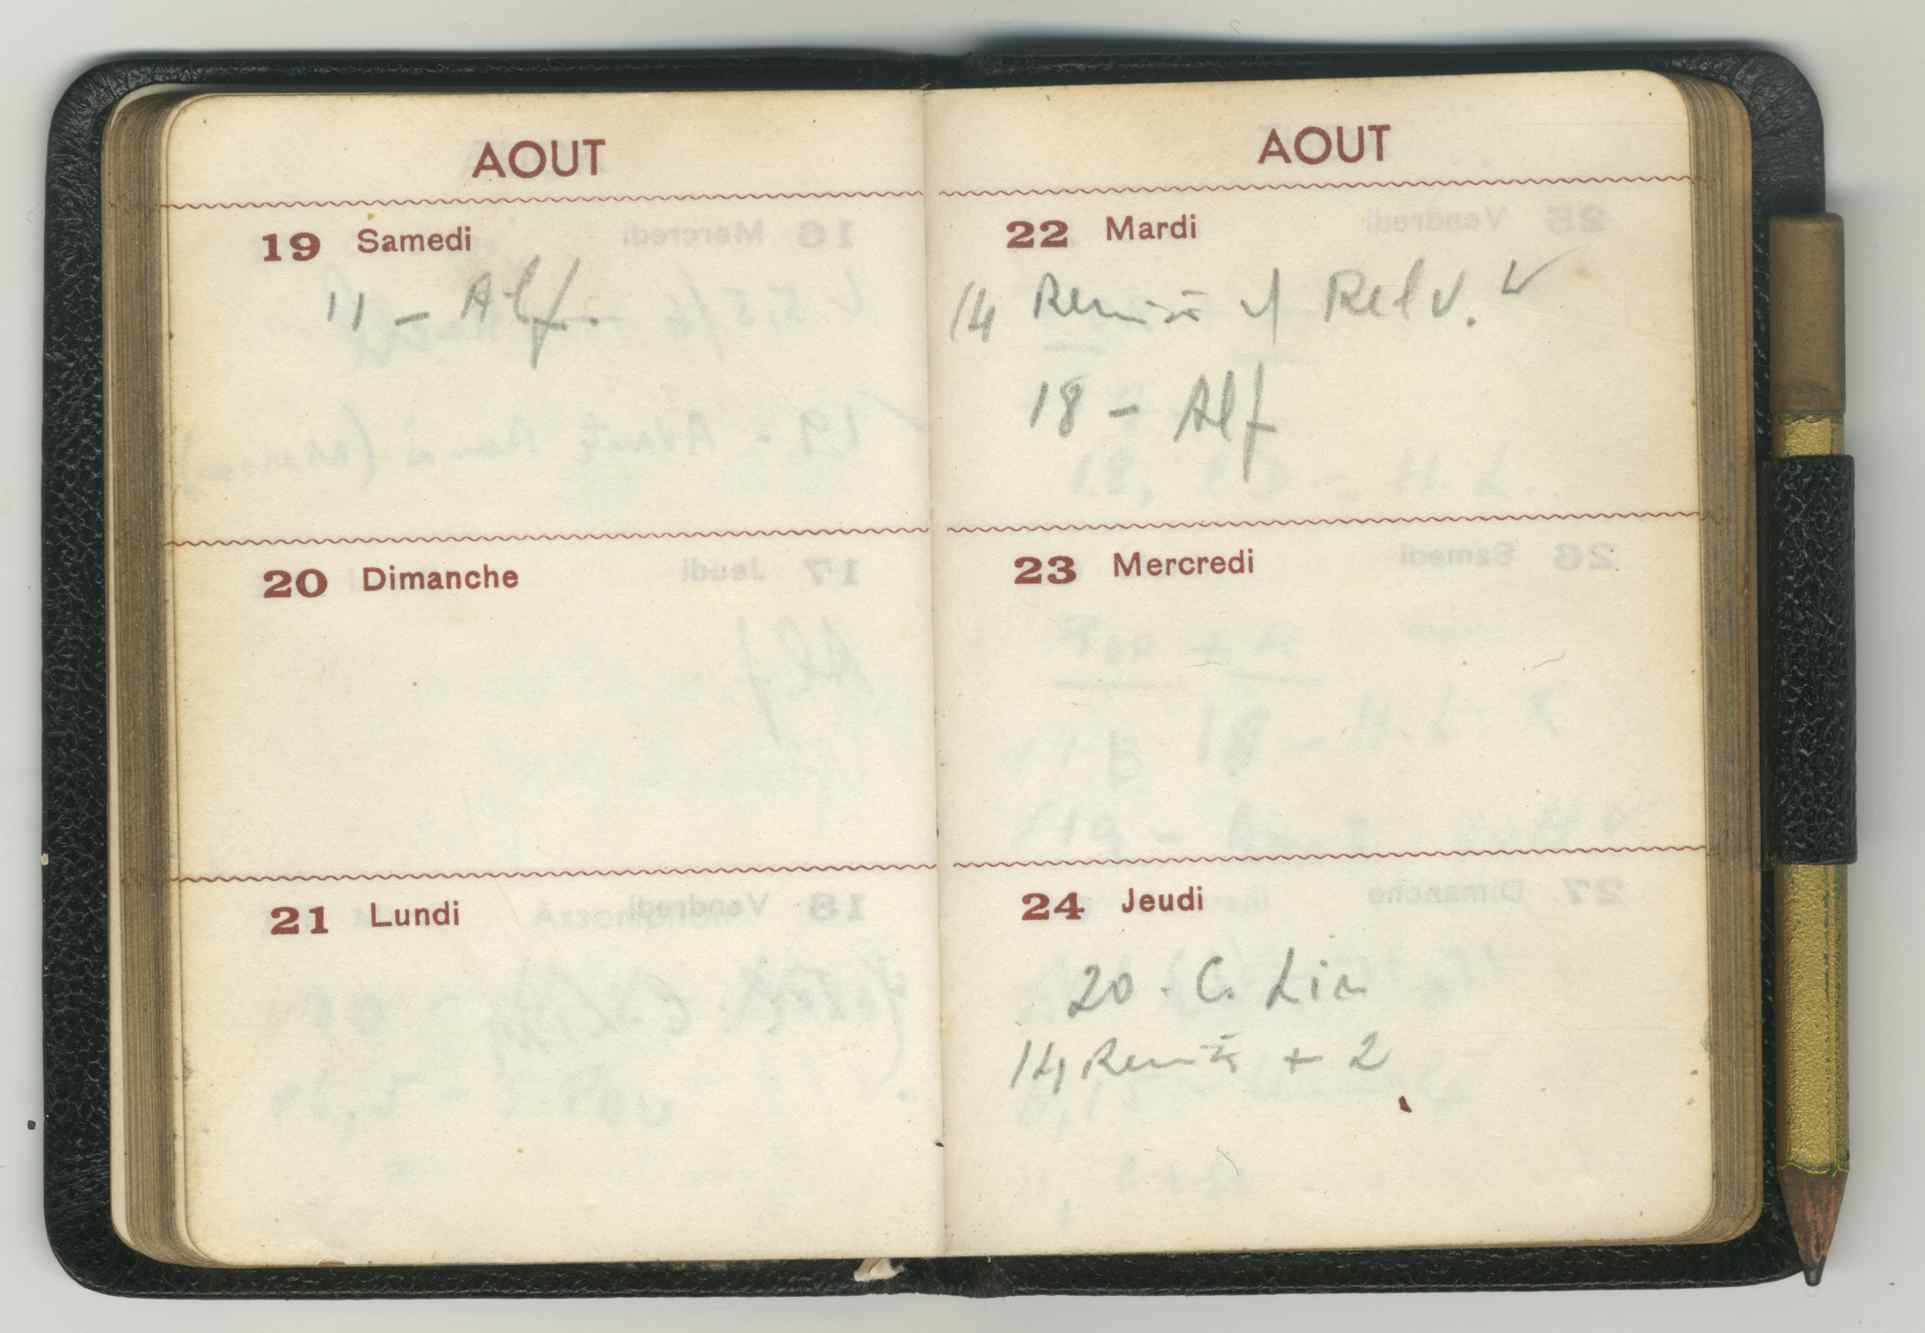 AOUT
19 Samedi
11 - Alf.
20 Dimanche
21 Lundi
AOUT
22 Mardi
14
18 - Alf
23 Mercredi
24 Jeudi
20. C. Lin
14 + 2